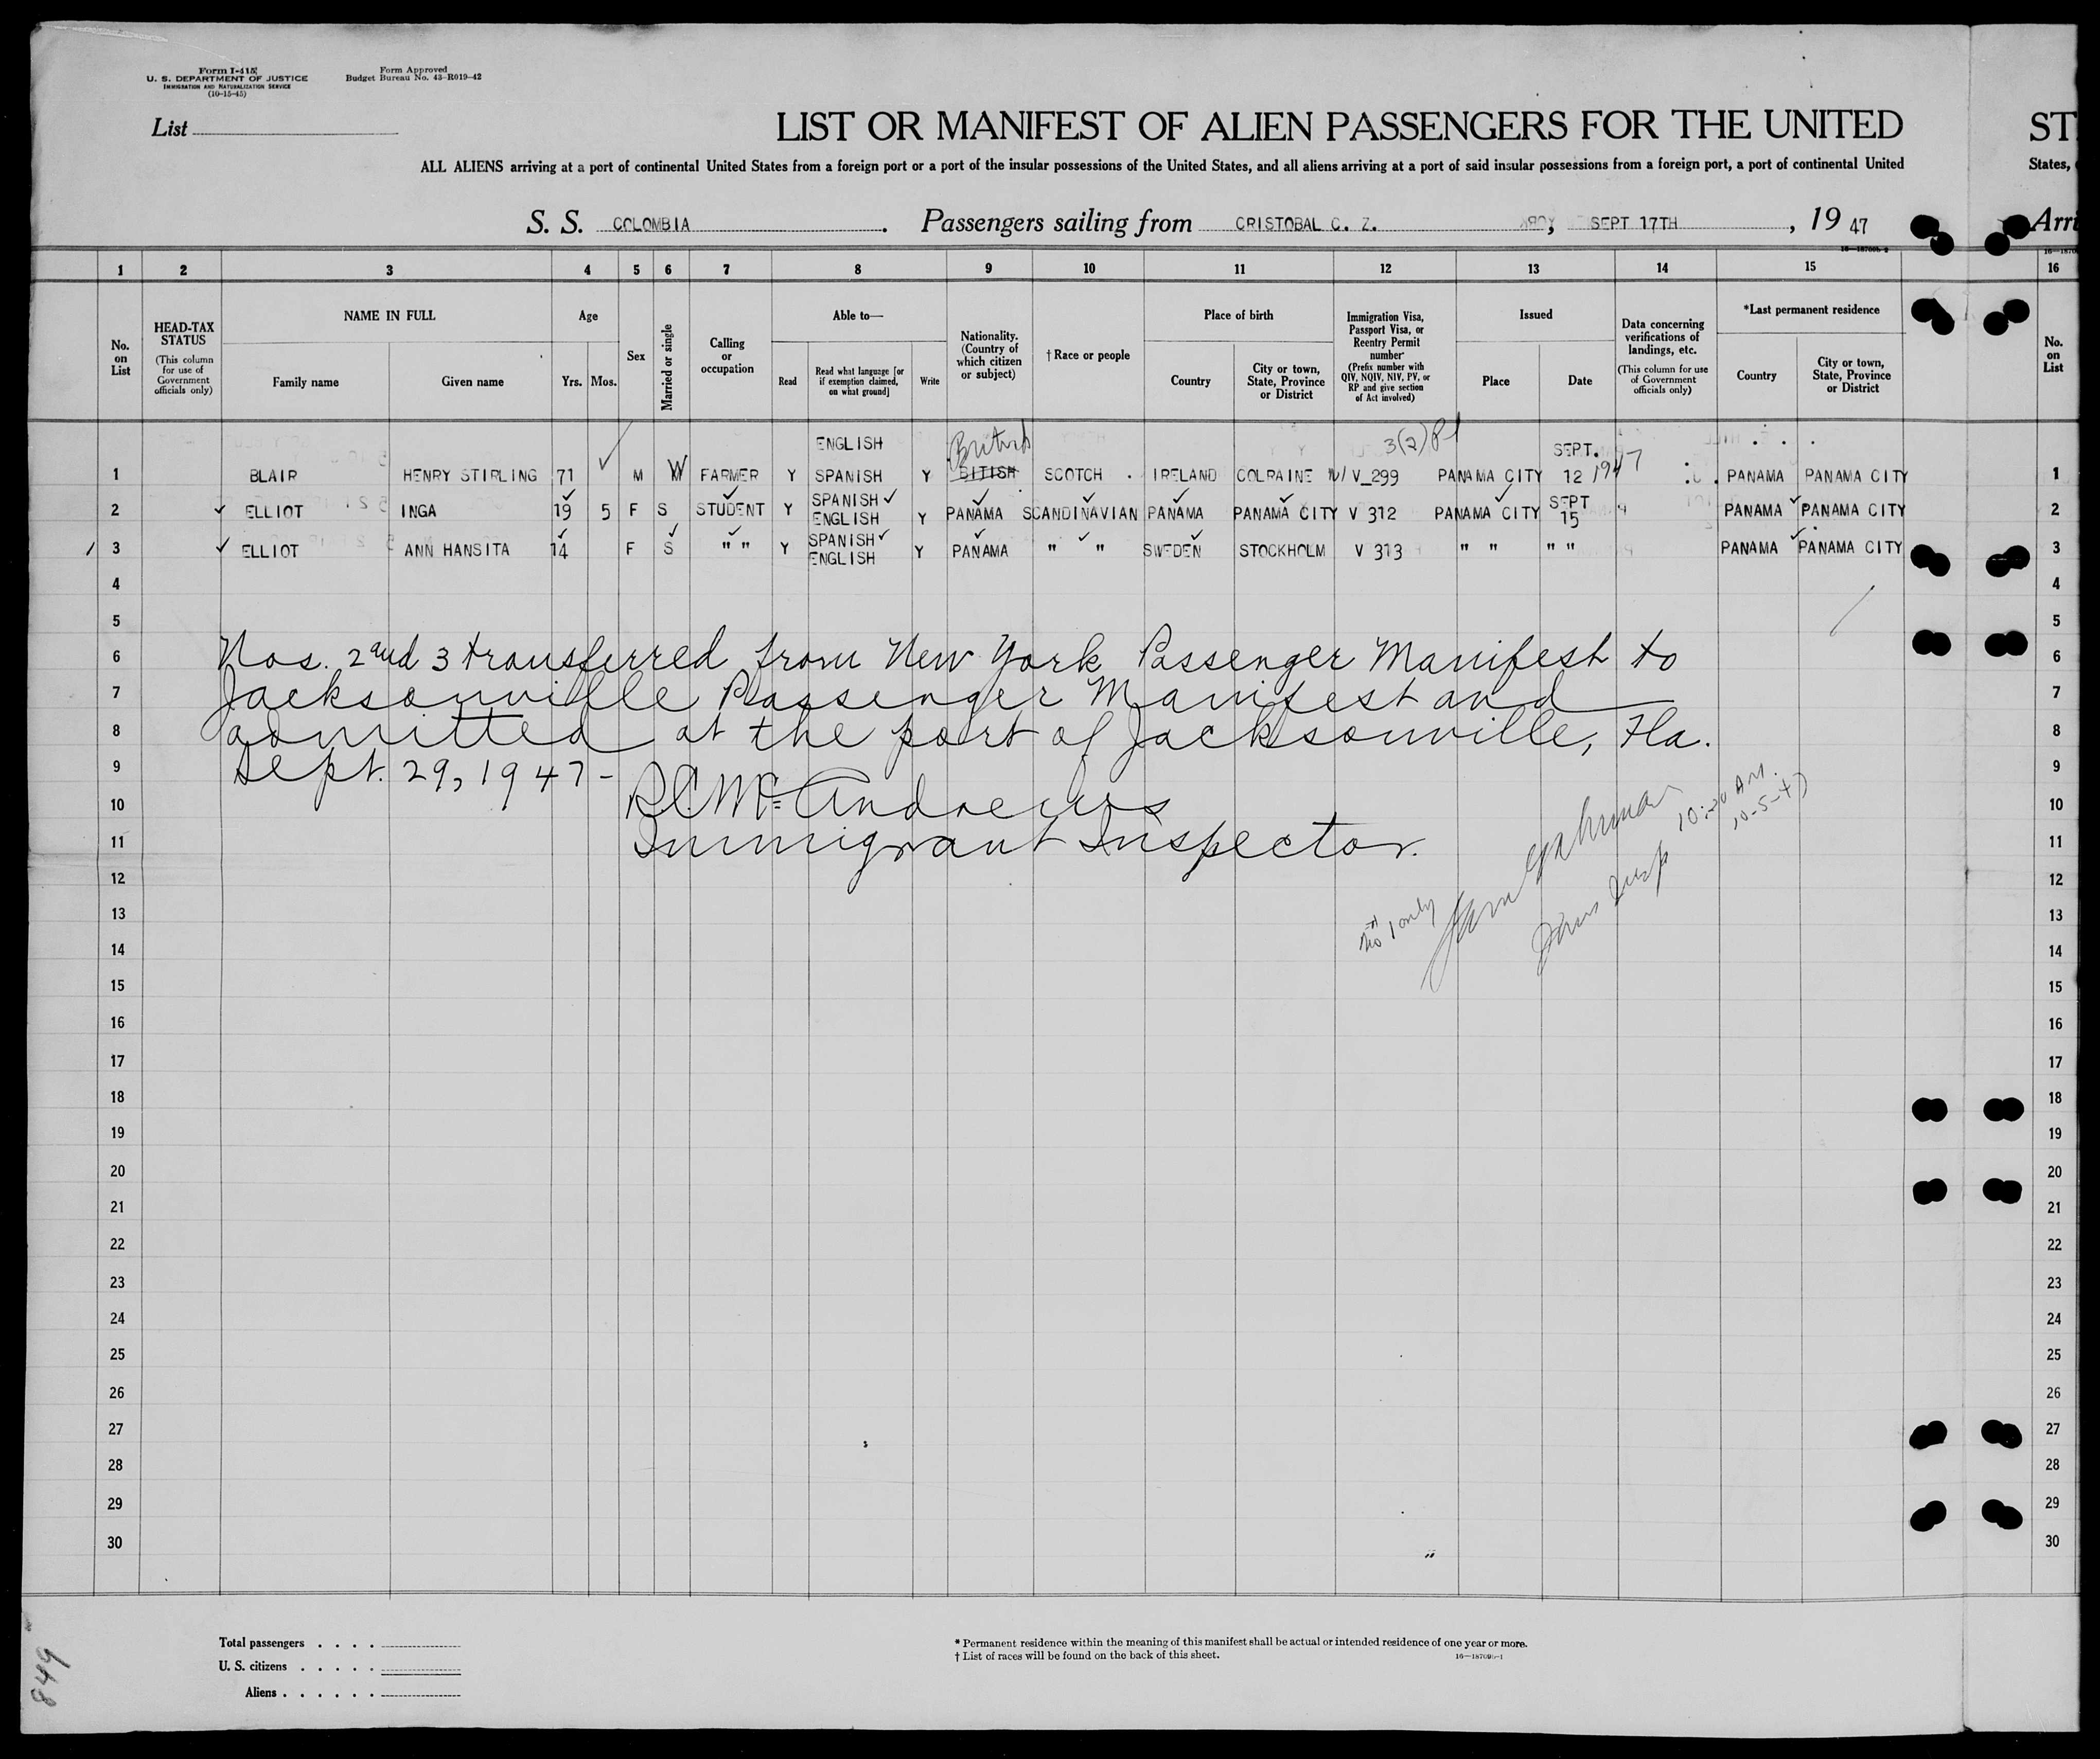 Form I-415
U. S. DEPARTMENT OF JUSTICE
IMMIGRATION AND NATURALIZATION SERVICE
(10-15-45)
Form Approved
Budget Bureau No. 43-R019-42
List
LIST OR MANIFEST OF ALIEN PASSENGERS FOR THE UNITED
ST
ALL ALIENS arriving at a port of continental United States from a foreign port or a port of the insular possessions of the United States, and all aliens arriving at a port of said insular possessions from a foreign port, a port of continental United
States,
S. S. COLOMBIA. Passengers sailing from CRISTOBAL C. Z., SEPT 17TH, 19 47
Arri
1 2 3 4 5 6 7 8 9 10 11 12 13 14 15 16
No. on List
HEAD-TAX STATUS (This column for use of Government officials only)
NAME IN FULL
Family name
Given name
Age
Yrs. Mos.
Sex
Married or single
Calling or occupation
Able to—
Read
Read what language [or if exemption claimed, on what ground]
Write
Nationality. (Country of which citizen or subject)
† Race or people
Place of birth
Country
City or town, State, Province or District
Immigration Visa, Passport Visa, or Reentry Permit number (Prefix number with QIV, NQIV, NIV, PV, or RP and give section of Act involved)
Issued
Place
Date
Data concerning verifications of landings, etc. (This column for use of Government officials only)
*Last permanent residence
Country
City or town, State, Province or District
No. on List
ENGLISH British 3(2) SEPT.
1 BLAIR HENRY STIRLING 71 M W FARMER Y SPANISH Y BITISH SCOTCH IRELAND COLRAINE V_299 PANAMA CITY 12 1947 PANAMA PANAMA CITY 1
2 ✓ ELLIOT INGA 19 5 F S STUDENT Y SPANISH ENGLISH Y PANAMA SCANDINAVIAN PANAMA PANAMA CITY V 312 PANAMA CITY SEPT 15 PANAMA PANAMA CITY 2
3 ✓ ELLIOT ANN HANSITA 14 F S " " Y SPANISH ENGLISH Y PANAMA " " SWEDEN STOCKHOLM V 313 " " " " PANAMA PANAMA CITY 3
4 4
5 5
6 Nos. 2 and 3 transferred from New York Passenger Manifest to 6
7 Jacksonville Passenger Manifest and 7
8 admitted at the port of Jacksonville, Fla. 8
9 Sept. 29, 1947- 9
10 R.C. McAndrews 10
11 Immigrant Inspector. 11
10:20 AM.
10-5-47
No 1 only
Insp
12 12
13 13
14 14
15 15
16 16
17 17
18 18
19 19
20 20
21 21
22 22
23 23
24 24
25 25
26 26
27 27
28 28
29 29
30 30
Total passengers . . . .
U. S. citizens . . . . .
Aliens . . . . . .
* Permanent residence within the meaning of this manifest shall be actual or intended residence of one year or more.
† List of races will be found on the back of this sheet.
849